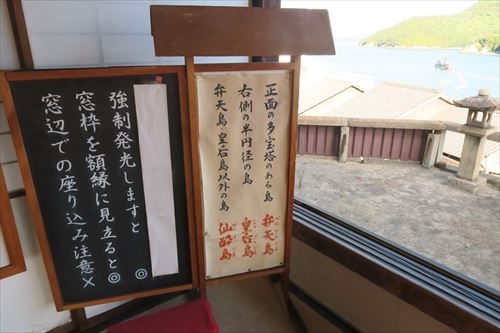 正面の多宝塔のある島 弁天島
右側の半円径の島 皇后島
弁天島・皇后島以外の島 仙酔島
強制発光しますと
窓枠を額縁に見立ると◎
窓辺での座り込み注意×